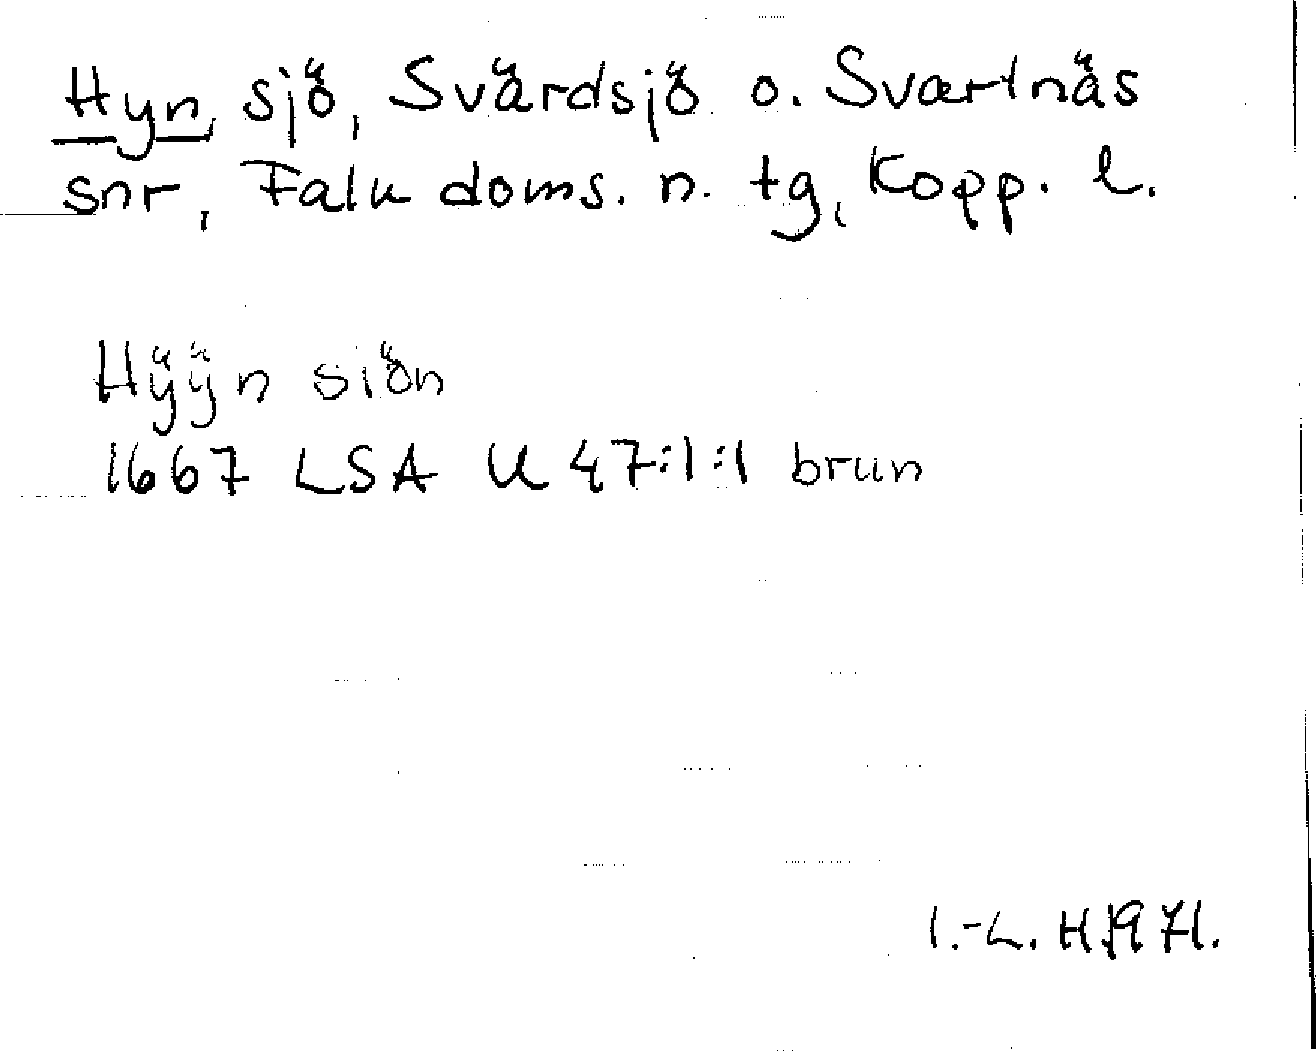 Hyn, sjö, Svärdsjö o. Svartnäs
snr, Falu doms. n. tg, Kopp. l.
Hÿÿn siön
1667 LSA U 47:1:1 brun
I.-L. H. 1971.